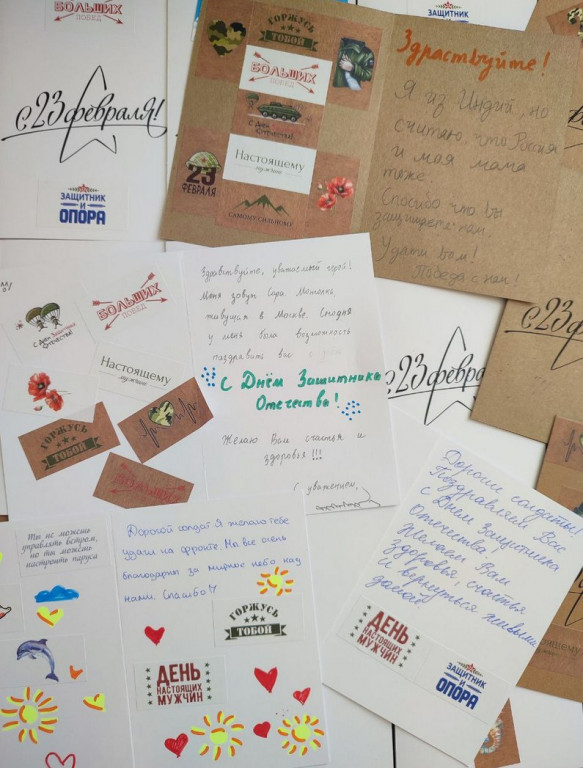 БОЛЬШИХ
ПОБЕД
С 23 февраля!
ЗАЩИТНИК
И
ОПОРА
ЗАЩИТНИК
И
ГОРЖУСЬ
ТОБОЙ
БОЛЬШИХ
ПОБЕД
С Днём
Отечества!
Настоящему
мужчине
23
ФЕВРАЛЯ
САМОМУ СИЛЬНОМУ
Здраствуйте!
Я из Индии, но
считаю, что Россия
и моя мама
тоже.
Спасибо что вы
защищаете нам.
Удачи Вам!
Победа с нам!
С Днём Защитника
Отечества!
БОЛЬШИХ
ПОБЕД
Настоящему
мужчине
ГОРЖУСЬ
ТОБОЙ
БОЛЬШИХ
Здравствуйте, уважаемый герой!
Меня зовут Сара
живущая в Москве. Сегодня
у меня была возможность
поздравить вас с
С Днём Защитника
Отечества!
Желаю Вам счастья и
здоровья!!!
С уважением,
С 23 февра
С 23
Ты не можешь
управлять ветром,
но ты можешь
настроить паруса
Дорогой солдат Я желаю тебе
удачи на фронте. Мы все очень
благодарны за мирное небо над
нами Спасибо!
ГОРЖУСЬ
ТОБОЙ
ДЕНЬ
НАСТОЯЩИХ
МУЖЧИН
Дорогие солдаты!
Поздравляем Вас
с Днём Защитника
Отечества.
Желаем Вам
здоровья, счастья
и вернуться живыми
домой
ДЕНЬ
НАСТОЯЩИХ
МУЖЧИН
ЗАЩИТНИК
И
ОПОРА